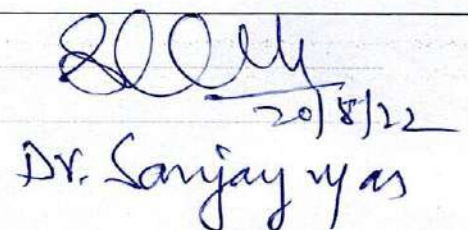 20/8/22
Dr. Sanjay vyas